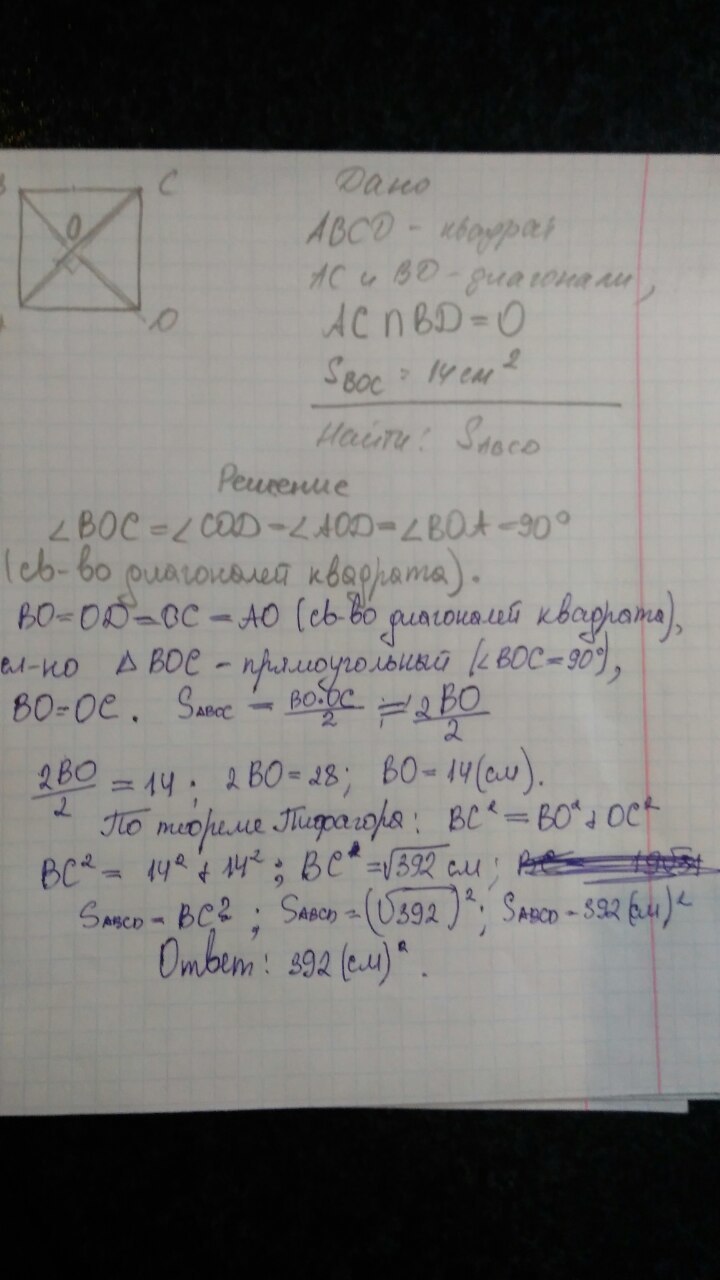 C
Дано
O
ABCD - квадрат
AC и BD - диагонали,
D
AC ∩ BD = O
S_BOC = 14 см²
Найти: S_ABCD
Решение
∠BOC = ∠COD = ∠AOD = ∠BOA = 90°
(св-во диагоналей квадрата).
BO = OD = OC = AO (св-во диагоналей квадрата),
сл-но △BOC - прямоугольный (∠BOC = 90°),
BO = OC. S_ΔBOC = BO·OC/2 = 2BO/2
2BO/2 = 14; 2BO = 28; BO = 14 (см).
По теореме Пифагора: BC² = BO² + OC²
BC² = 14² + 14²; BC = √392 см;
S_ABCD = BC²; S_ABCD = (√392)²; S_ABCD = 392 (см)²
Ответ: 392 (см)².